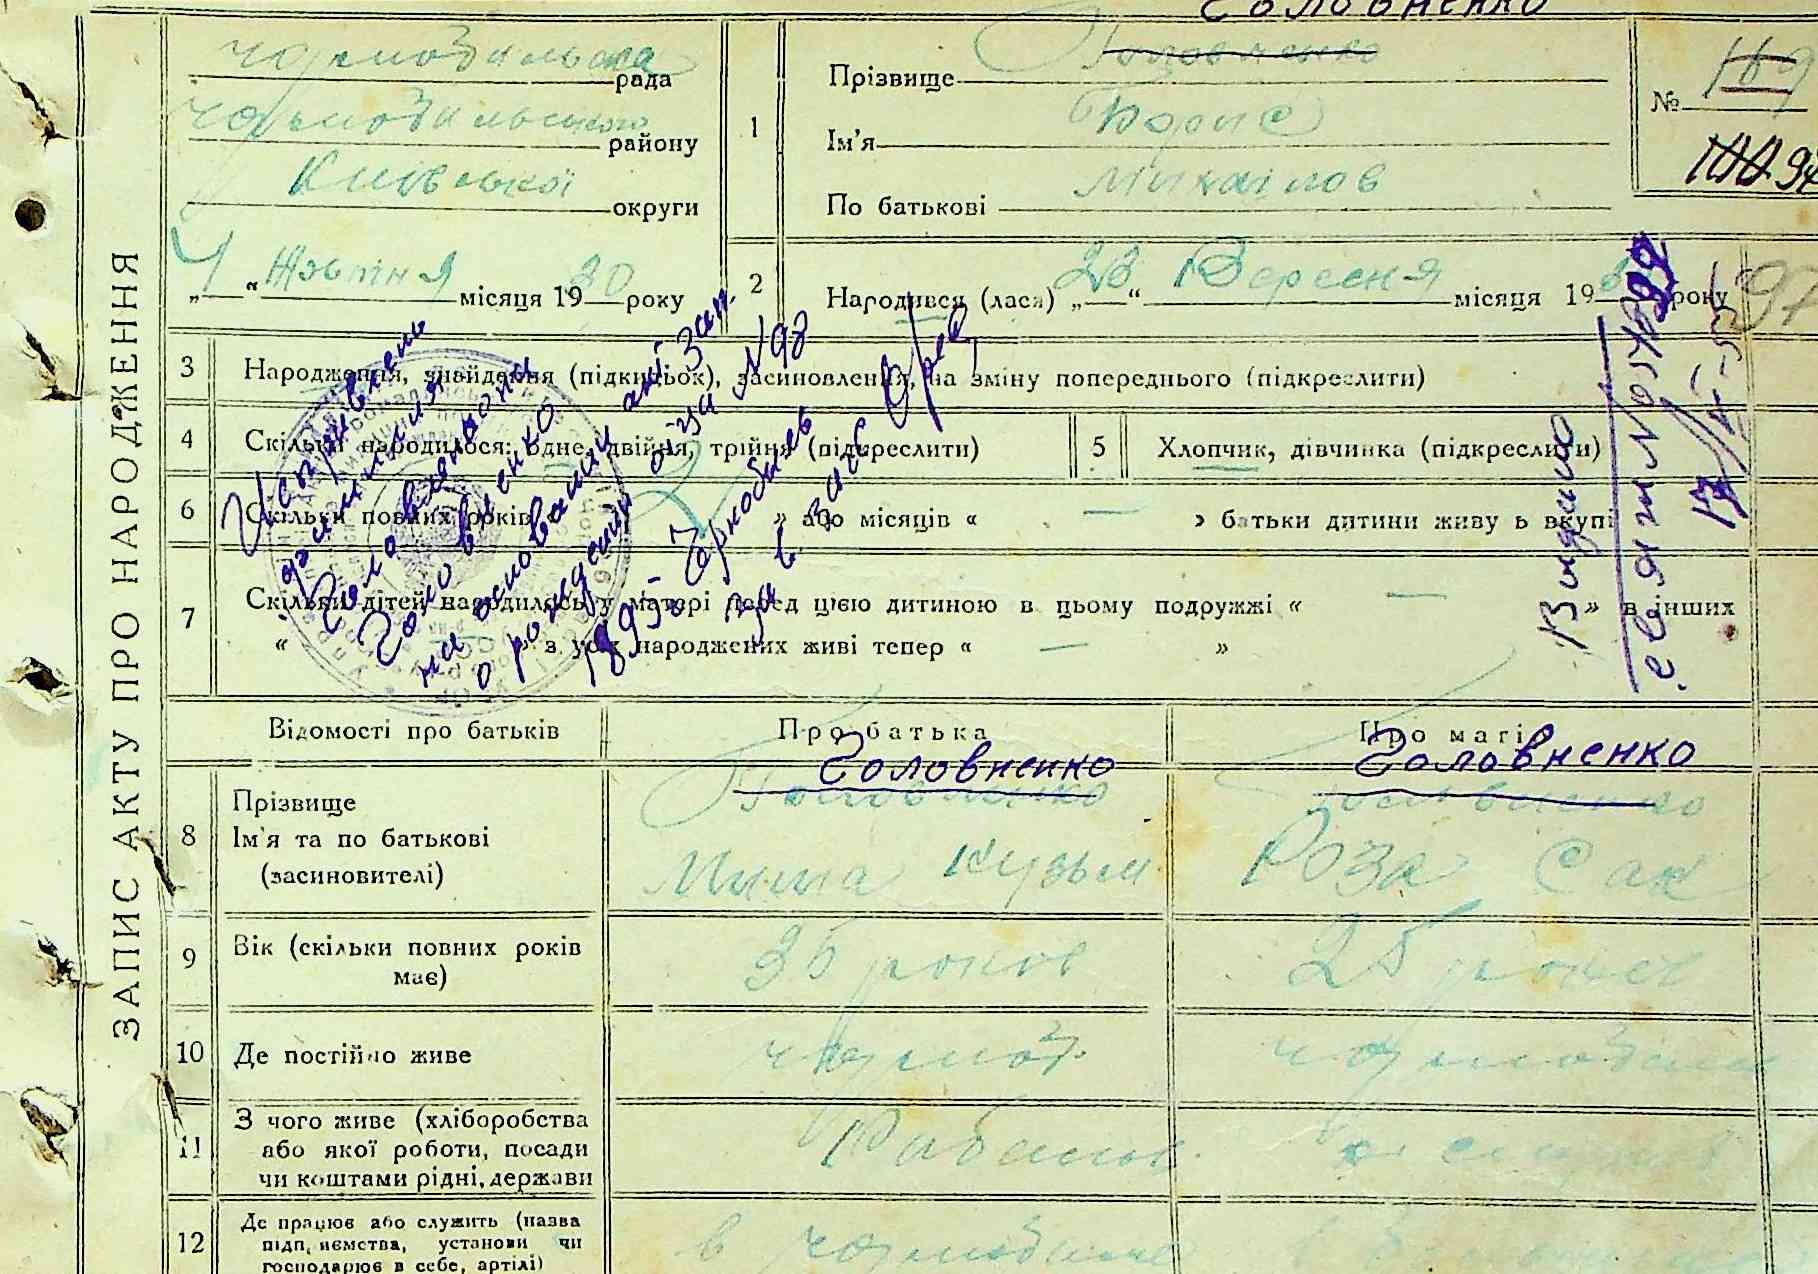 Головненко
ЗАПИС АКТУ ПРО НАРОДЖЕННЯ
Чорнобильська рада
Чорнобильського району
Київської округи
„ 4 “ Жовтня місяця 19 30 року
1
Прізвище
Ім'я Борис
По батькові Михайлов
№ 169
94
97
2
Народився (лася) „ 23 “ Вересня місяця 19 року
3 Народження, знайдення (підкидьок), засиновлення, на зміну попереднього (підкреслити)
4 Скільки народилося: одне, двійня, трійня (підкреслити)
5 Хлопчик, дівчинка (підкреслити)
6 Скільки повних років « — » або місяців « — » батьки дитини живуть вкупі
7 Скільки дітей народилось у матері перед цією дитиною в цьому подружжі « — » в інших
« — » з усіх народжених живі тепер « — »
Исправлены
фамилии
на основании акт. зап.
о рождении отца N 98
1895 г Чернобыль
Видано
свят N
Відомості про батьків
Про батька
Про матір
8 Прізвище
Ім'я та по батькові
(засиновителі)
Головненко
Миша Кузьм
Головненко
Роза Сак
9 Вік (скільки повних років
має)
36 роков
25 роков
10 Де постійно живе
Чорноб.
Чорнобиль
11 З чого живе (хліборобства
або якої роботи, посади
чи коштами рідні, держави
12 Де працює або служить (назва
підприємства, установи чи
господарює в себе, артілі)
в Чорнобиле